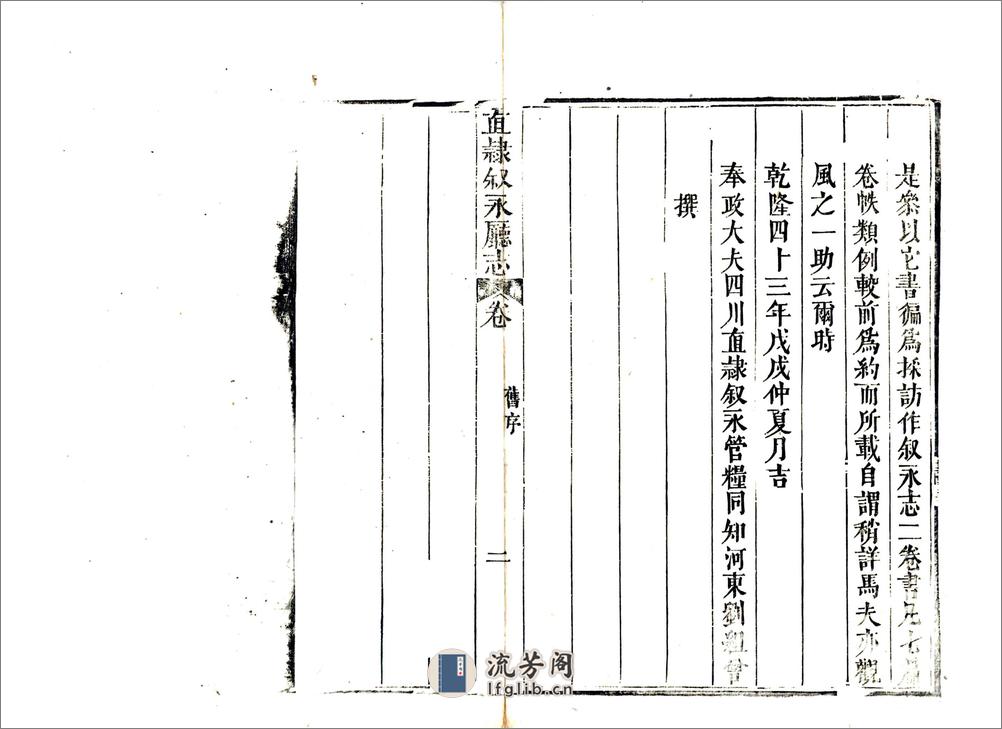 是叅以它書徧爲採訪作叙永志二卷書凡七易
卷帙類例較前爲約而所載自謂稍詳焉夫亦觀
風之一助云爾時
乾隆四十三年戊戌仲夏月吉
奉政大夫四川直隷叙永管糧同知河東劉組曾
撰
直隷叙永廳志 卷 舊序 二
流芳阁
lfglib.cn